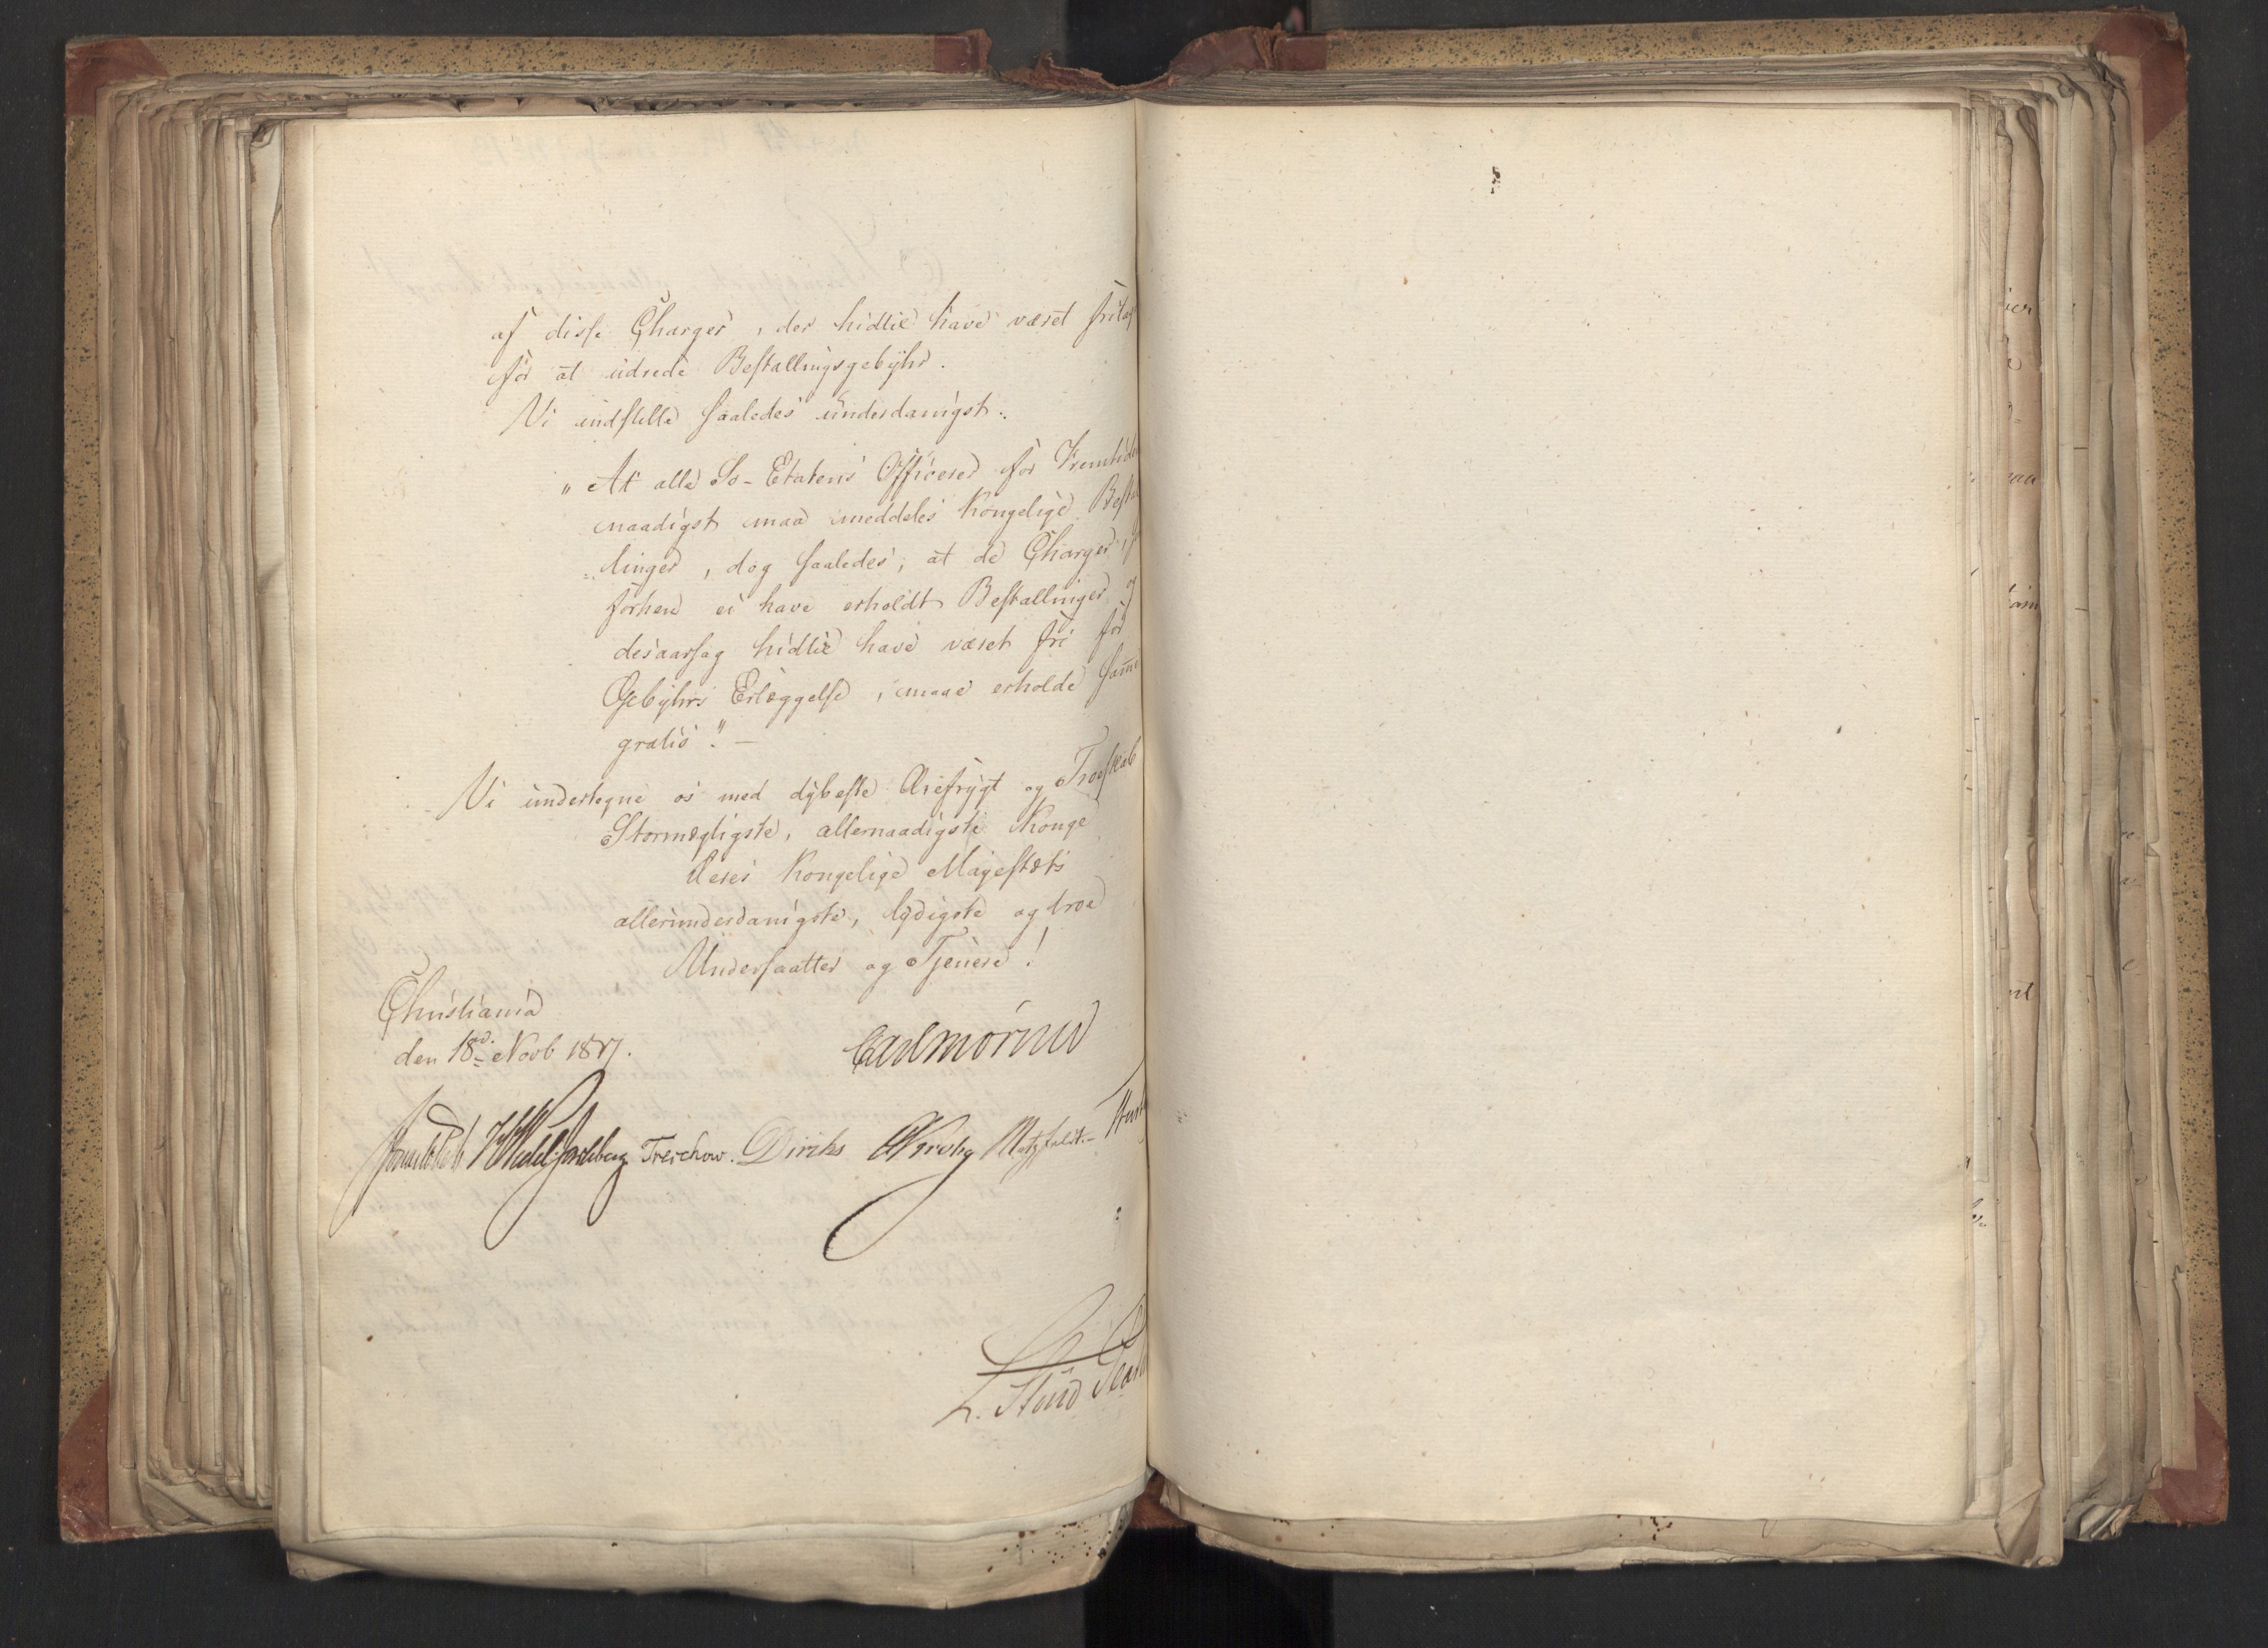 af disse Charger, der hidtil have været fritag
for at udrede Bestallingsgebyhr.
Vi indstille saaledes underdanigst:
"At alle Sö-Etatens Officerer for Fremtiden
naadigst maa meddeles Kongelige Bestal
linger, dog saaledes, at de Charger,
forhen ei have erholdt Bestallinger og
desaarsag hidtil have været fri for
Gebyhrs Erlæggelse, maae erholde samme
gratis". —
Vi undertegne os med dybeste Ærefrygt og Troeskab
Stormægtigste, allernaadigste Konge
Deres Kongelige Majestæts
allerunderdanigste, lydigste og troe
Undersaatter og Tjenere!
Christiania
den 18de Novb 1817.
Carl Mörner
Sommerhielm HWedelJarlsberg Treschow. Diriks CKrohg Motzfeldt.
L. Stoud Plat